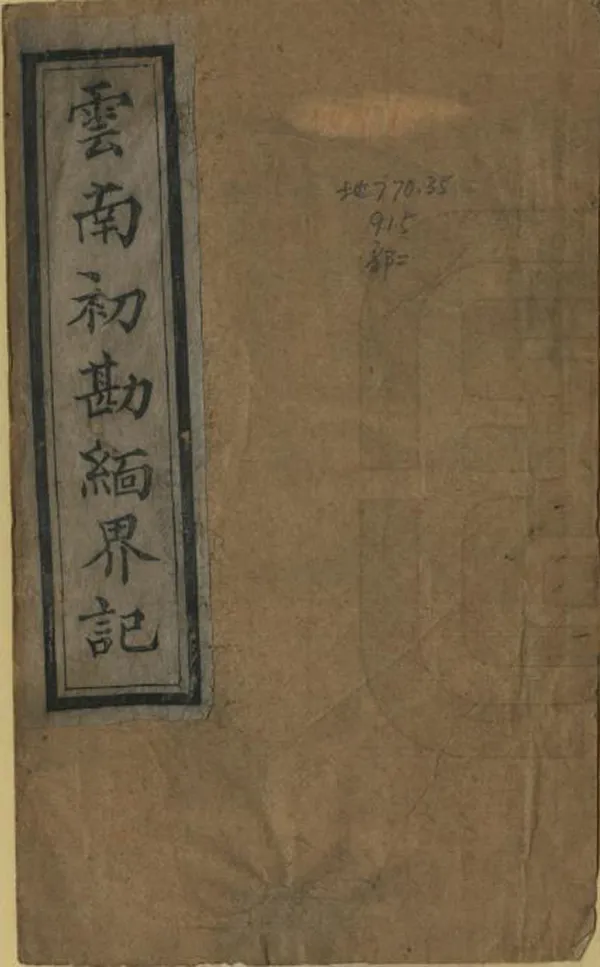 雲南初勘緬界記
地770.35
915
郭二